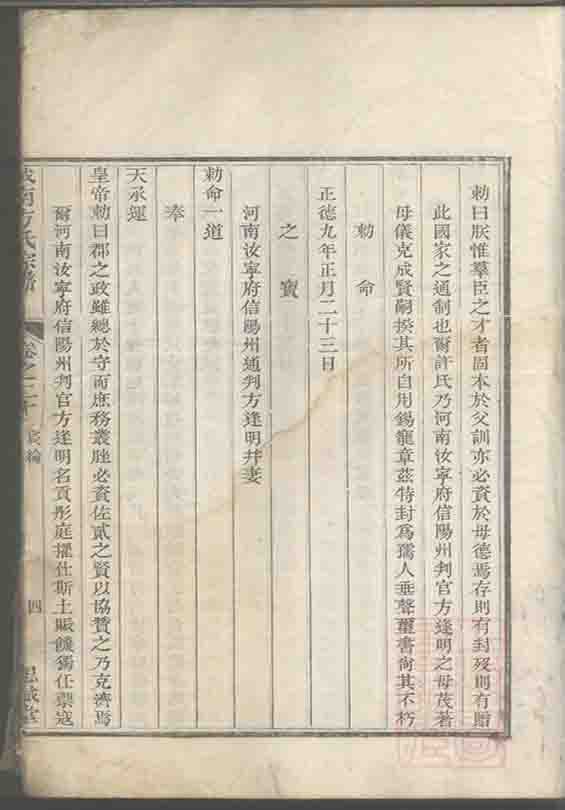 勅曰朕惟羣臣之才者固本於父訓亦必資於母德焉存則有封歿則有贈
此國家之通制也爾許氏乃河南汝寧府信陽州判官方逢明之母茂著
母儀克成賢嗣揆其所自用錫寵章茲特封爲孺人垂聲璽書尙其不朽
勅命
正德九年正月二十三日
之寶
河南汝寧府信陽州通判方逢明幷妻
勅命一道
奉
天承運
皇帝勅曰郡之政雖總於守而庶務叢脞必資佐貳之賢以協贊之乃克濟焉
爾河南汝寧府信陽州判官方逢明名貢彤庭擢仕斯土賬饑獨任禦寇
城南方氏宗譜 卷之二十 四 思成堂